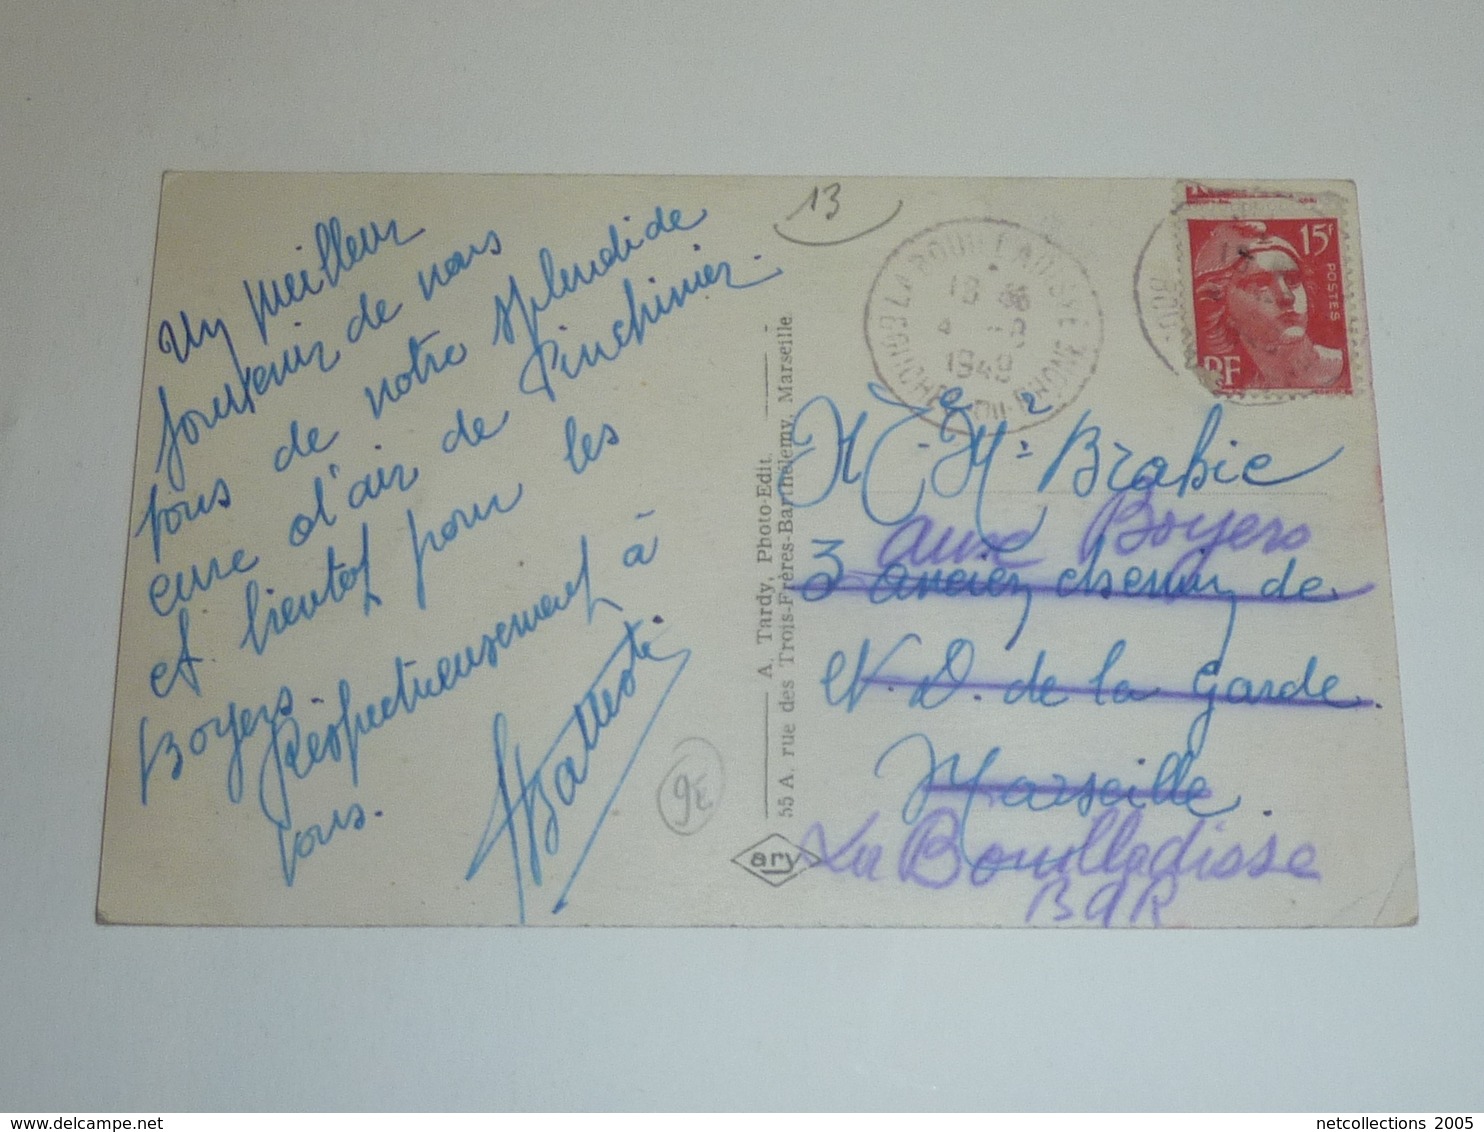 Un meilleur
souvenir de nous
tous de notre splendide
cure d'air de Pinchinier.
et bientot pour les
Boyers.
Respectueusement à
vous.
13
9E
A. Tardy, Photo-Edit.
55 A. rue des Trois-Frères-Barthélemy, Marseille
ary
LA BOUILLADISSE
BOUCHES-DU-RHONE
18
4
1949
15F
POSTES
RF
Brabie
aux Boyers
3 ancien chemin de
N. D. de la Garde.
Marseille.
La Bouilladisse
BdR
netcollections 2005